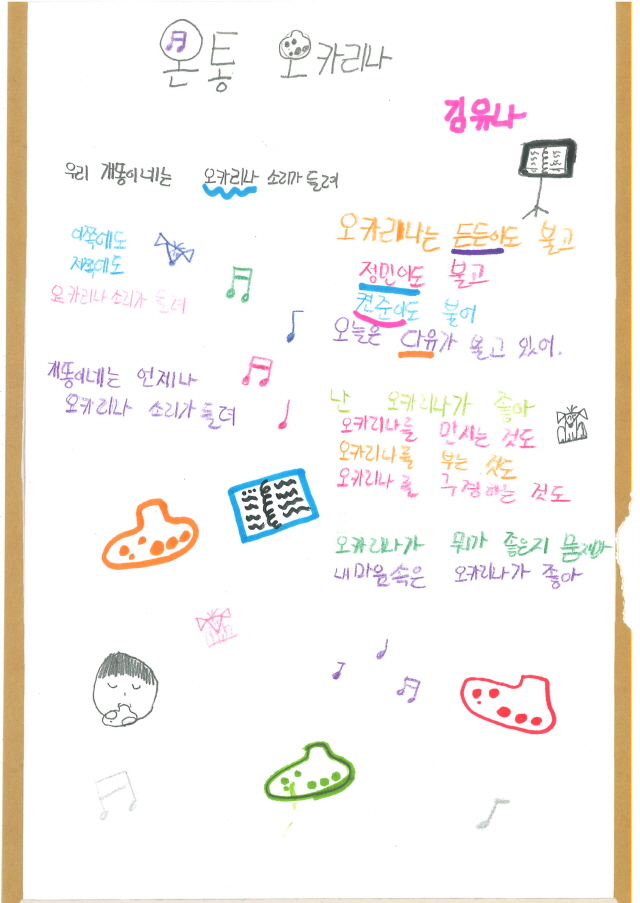 온통 오카리나
김유나
우리 개똥이네는 오카리나 소리가 들려
이쪽에도
저쪽에도
오카리나 소리가 들려
개똥이네는 언제나
오카리나 소리가 들려
오카리나는 든든이도 불고
정민이도 불고
권준이도 불어
오늘은 다유가 불고 있어.
난 오카리나가 좋아
오카리나를 만지는 것도
오카리나를 부는 것도
오카리나를 구경하는 것도
오카리나가 뭐가 좋은지 묻지마
내 마음속은 오카리나가 좋아